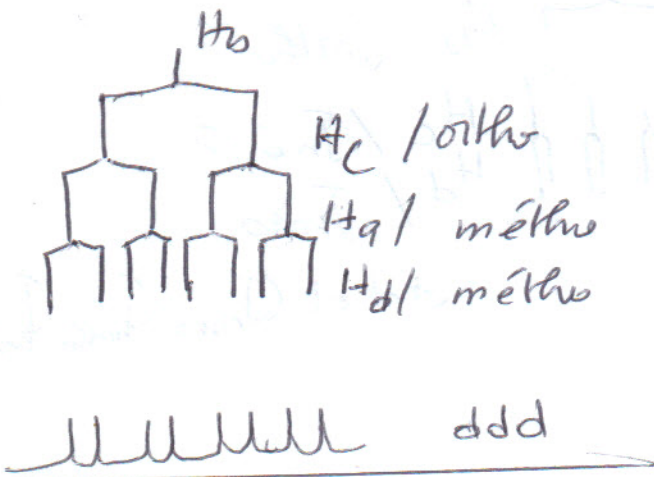 Hb
Hc / ortho
Ha / métho
Hd / métho
ddd